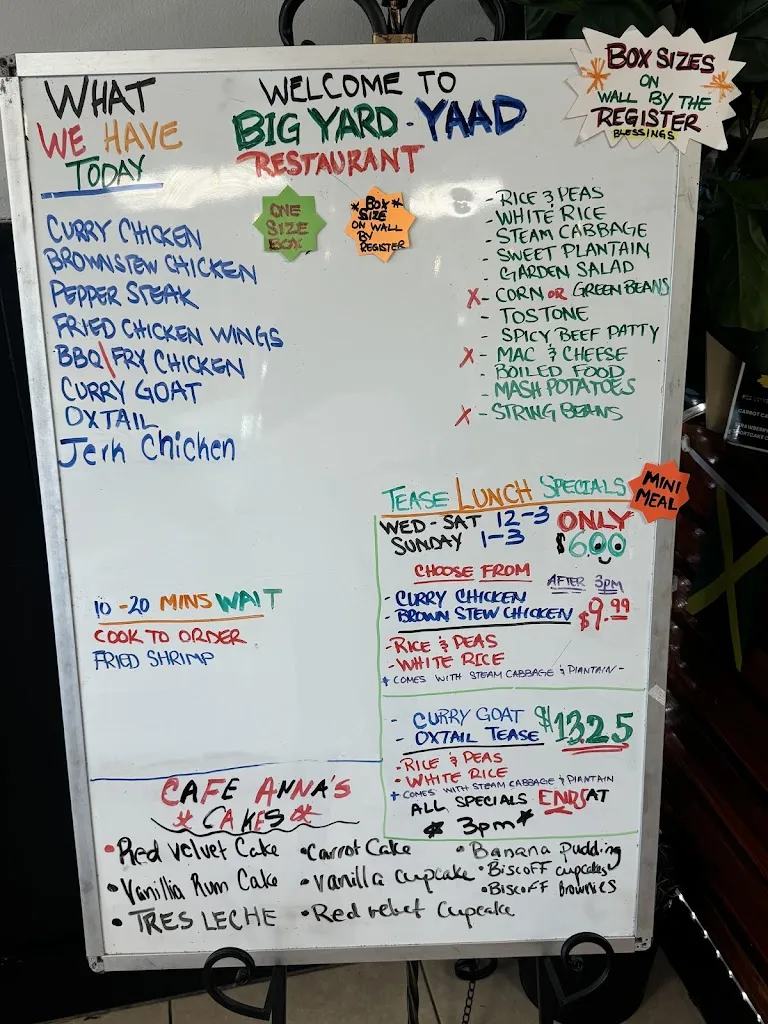 WHAT
WE HAVE
TODAY
WELCOME TO
BIG YARD - YAAD
RESTAURANT
BOX SIZES
ON
WALL BY THE
REGISTER
BLESSINGS
ONE
SIZE
BOX
* BOX *
SIZE
ON WALL
BY
REGISTER
CURRY CHICKEN
BROWNSTEW CHICKEN
PEPPER STEAK
FRIED CHICKEN WINGS
BBQ\FRY CHICKEN
CURRY GOAT
OXTAIL
Jerk Chicken
- RICE & PEAS
- WHITE RICE
- STEAM CABBAGE
- SWEET PLANTAIN
- GARDEN SALAD
X - CORN OR GREEN BEANS
- TOSTONE
- SPICY BEEF PATTY
X - MAC & CHEESE
- BOILED FOOD
- MASH POTATOES
X - STRING BEANS
10 -20 MINS WAIT
COOK TO ORDER
FRIED SHRIMP
TEASE LUNCH SPECIALS
MINI
MEAL
WED - SAT 12-3 ONLY
SUNDAY 1-3 $6.00
CHOOSE FROM
AFTER 3PM
- CURRY CHICKEN
- BROWN STEW CHICKEN $9.99
- RICE & PEAS
- WHITE RICE
+ COMES WITH STEAM CABBAGE & PIANTAIN -
- CURRY GOAT $13.25
- OXTAIL TEASE
- RICE & PEAS
- WHITE RICE
+ COMES WITH STEAM CABBAGE & PIANTAIN
ALL SPECIALS ENDS AT
* 3pm *
CAFE ANNA'S
* CAKES *
• Red Velvet Cake
• Vanillia Rum Cake
• TRES LECHE
• Carrot Cake
• Vanilla Cupcake
• Red velvet Cupcake
• Banana Pudding
• BiscoFF cupcakes
• BiscoFF Brownies